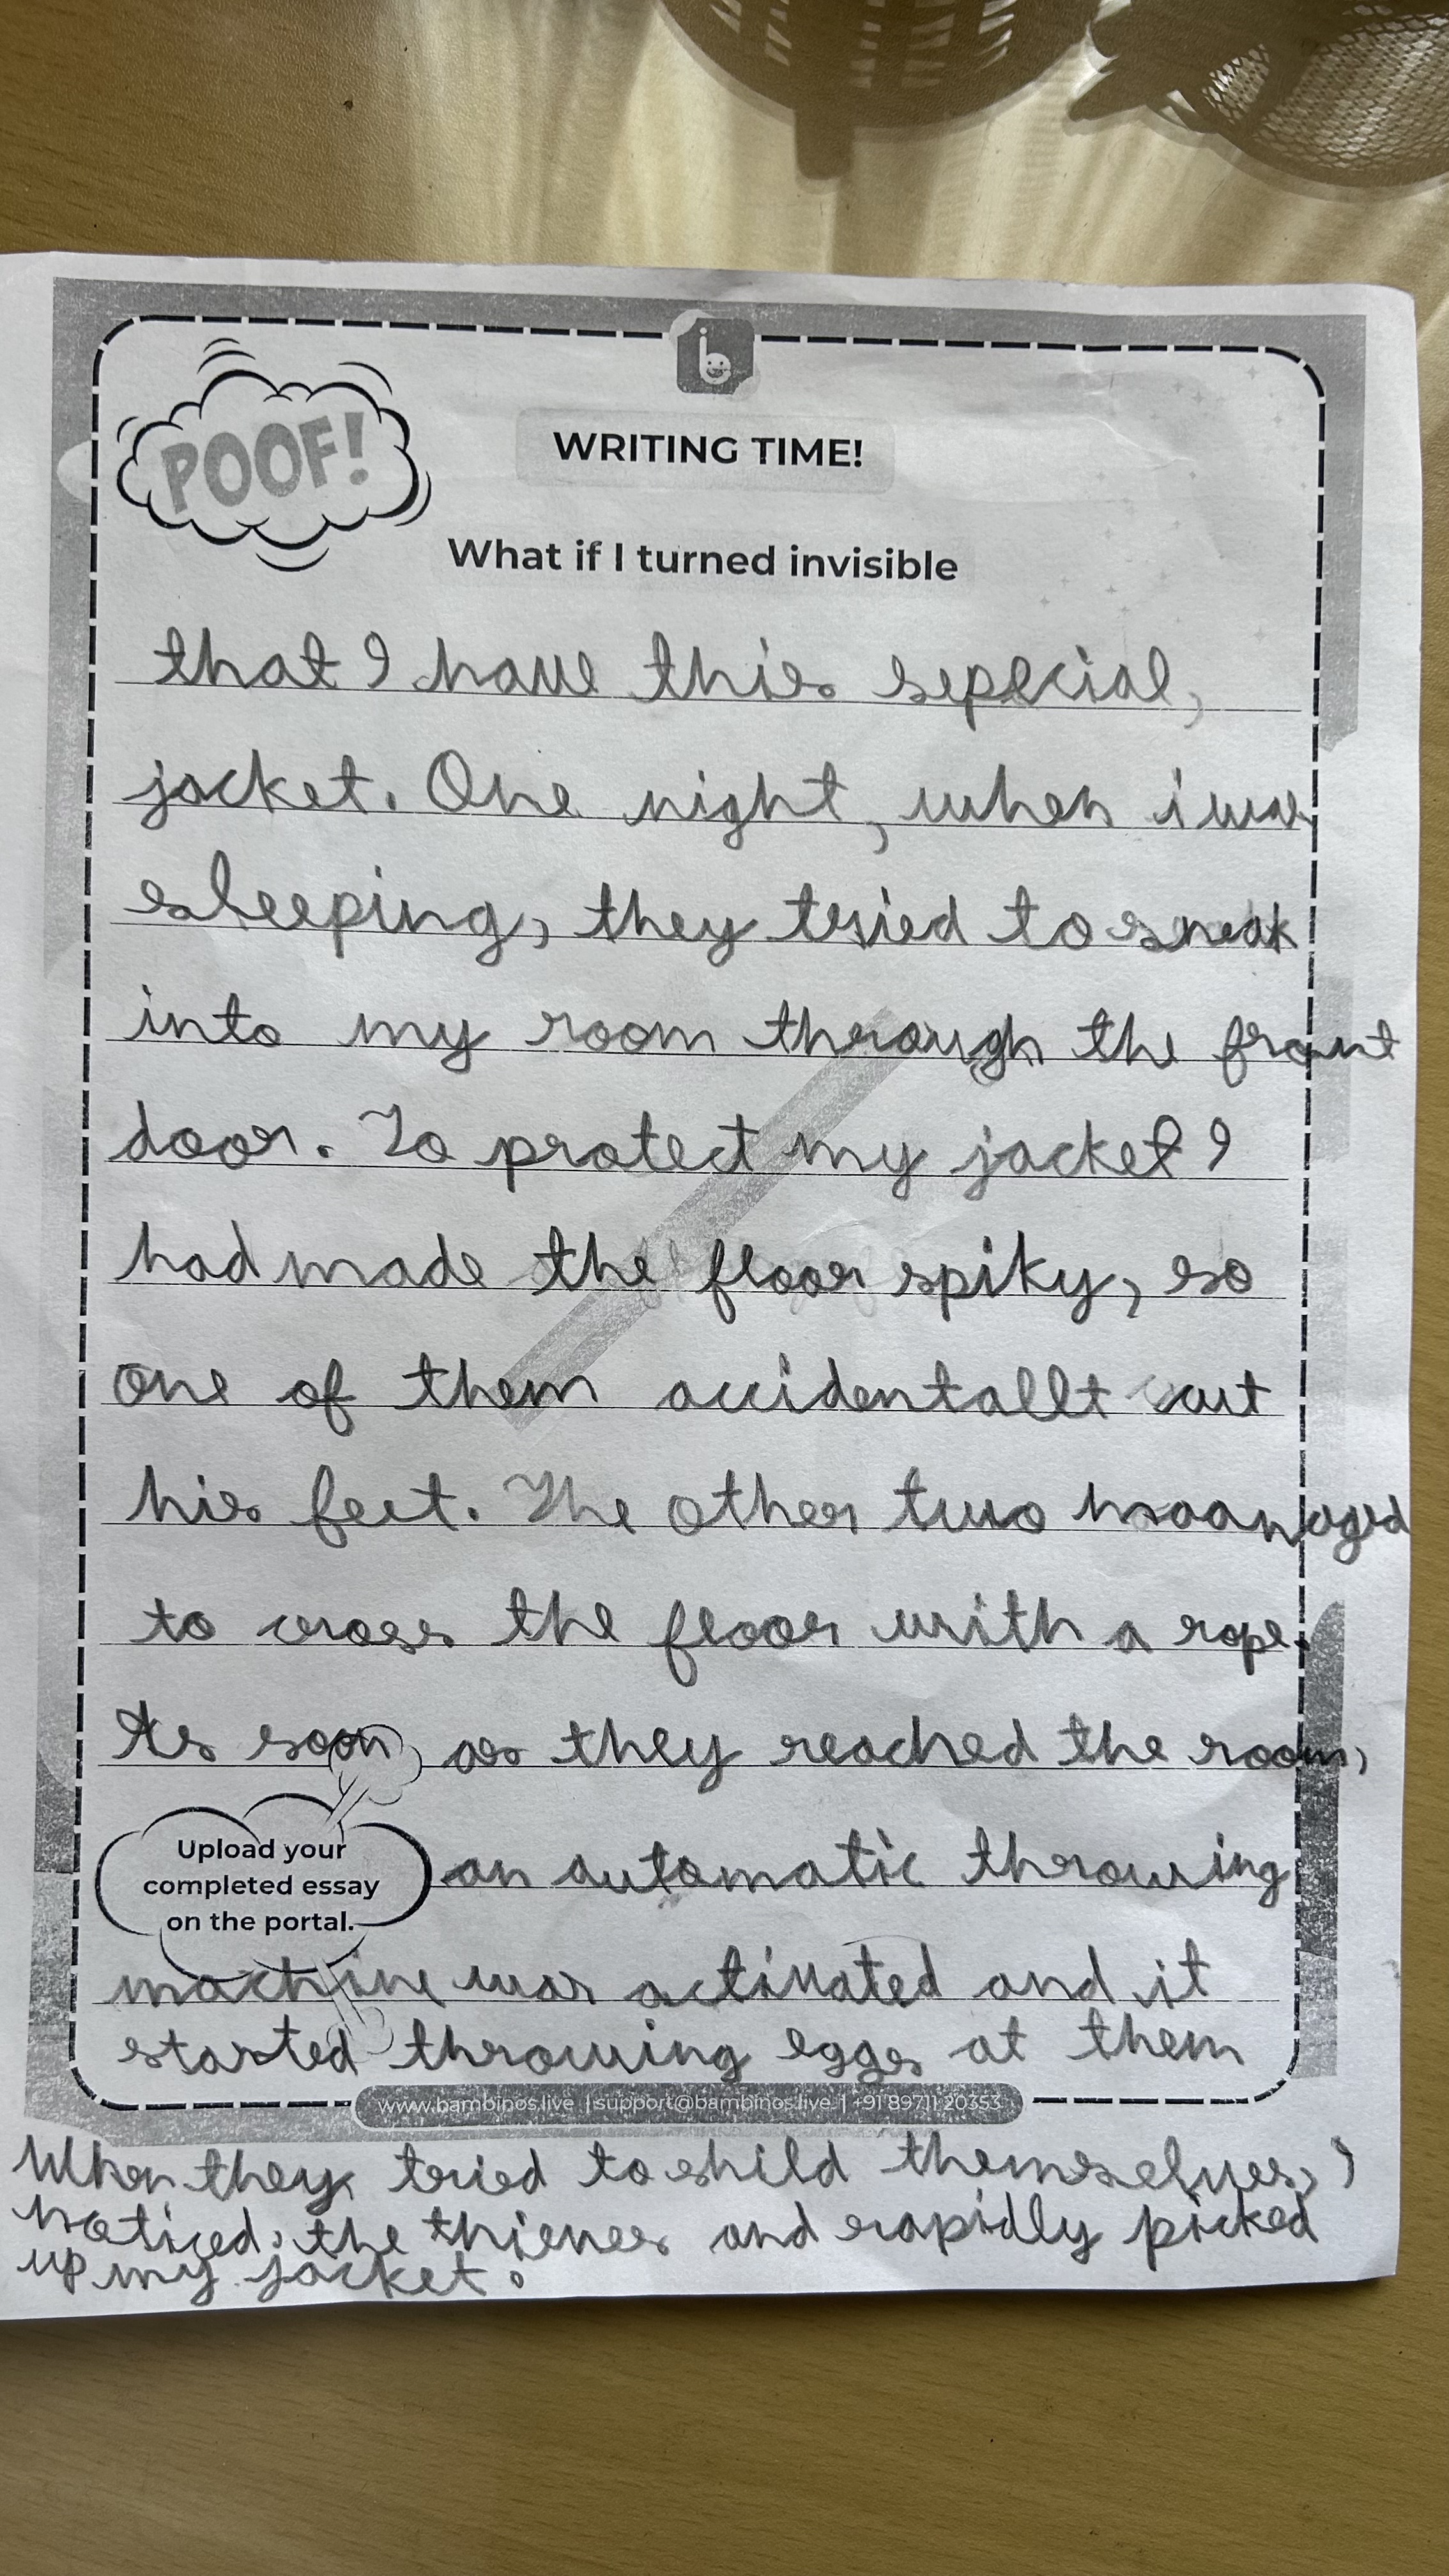 POOF!
WRITING TIME!
What if I turned invisible
that I have this sepecial,
jacket. One night, when i was
sleeping, they tried to sneak
into my room through the front
door. To protect my jacket I
had made the floor spiky, so
one of them accidentallt cut
his feet. The other two maanaged
to cross the floor with a rope.
As soon as they reached the room,
Upload your
completed essay
on the portal.
an automatic throwing
machine was activated and it
started throwing eggs at them
www.bambinos.live | support@bambinos.live | +91 89711 20353
When they tried to shild themselves, I
noticed the thieves and rapidly picked
up my jacket.